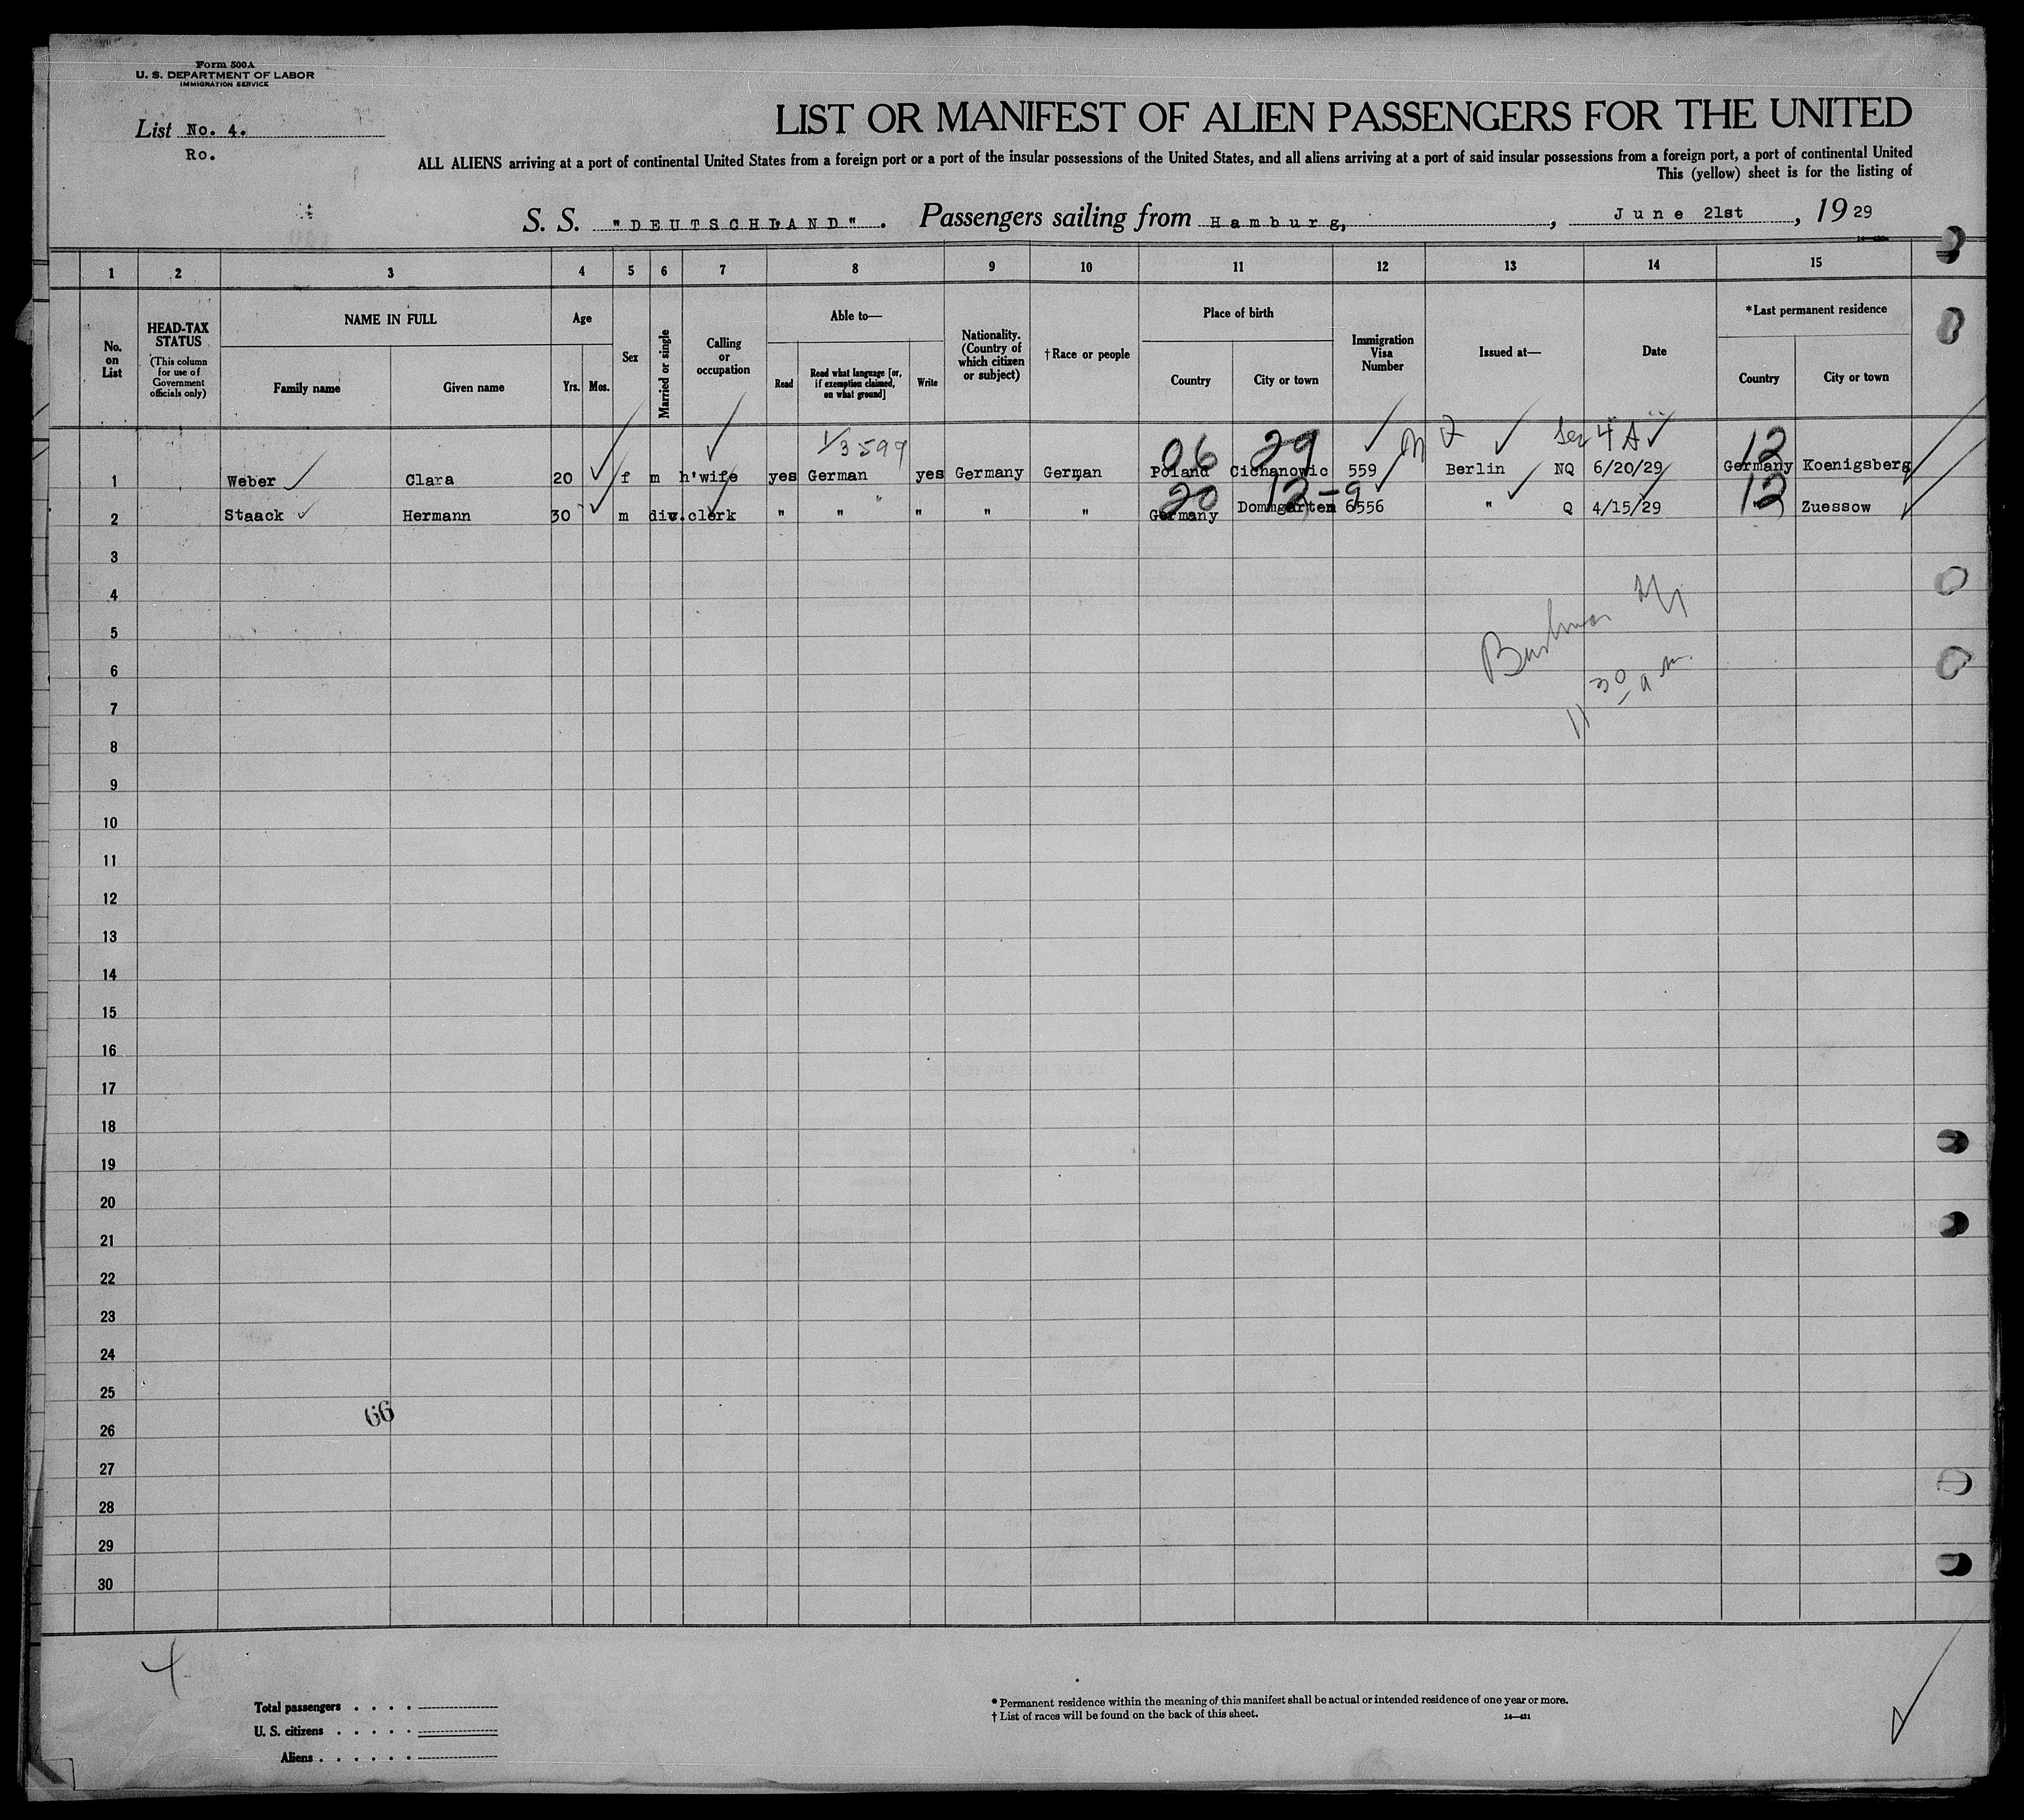 Form 500A
U. S. DEPARTMENT OF LABOR
IMMIGRATION SERVICE
List No. 4.
Ro.
LIST OR MANIFEST OF ALIEN PASSENGERS FOR THE UNITED
ALL ALIENS arriving at a port of continental United States from a foreign port or a port of the insular possessions of the United States, and all aliens arriving at a port of said insular possessions from a foreign port, a port of continental United
This (yellow) sheet is for the listing of
S. S. "DEUTSCHLAND". Passengers sailing from Hamburg, , June 21st, 1929
1 2 3 4 5 6 7 8 9 10 11 12 13 14 15
No. on List
HEAD-TAX STATUS
(This column for use of Government officials only)
NAME IN FULL
Family name Given name
Age
Yrs. Mos.
Sex
Married or single
Calling or occupation
Able to—
Read
Read what language [or, if exemption claimed, on what ground]
Write
Nationality. (Country of which citizen or subject)
†Race or people
Place of birth
Country City or town
Immigration Visa Number
Issued at—
Date
*Last permanent residence
Country City or town
1/3597 06 29 Sec 4 A 12
1 Weber Clara 20 f m h'wife yes German yes Germany German Poland Cichanowic 559 Berlin NQ 6/20/29 Germany Koenigsberg
20 12-9 12
2 Staack Hermann 30 m div. clerk " " " " " Germany Domhgarten 6556 " Q 4/15/29 " Zuessow
3
4
5
6
7
11 30 a m.
8
9
10
11
12
13
14
15
16
17
18
19
20
21
22
23
24
25
66
26
27
28
29
30
Total passengers . . . .
U. S. citizens . . . . .
Aliens . . . . . .
* Permanent residence within the meaning of this manifest shall be actual or intended residence of one year or more.
† List of races will be found on the back of this sheet.
14—431